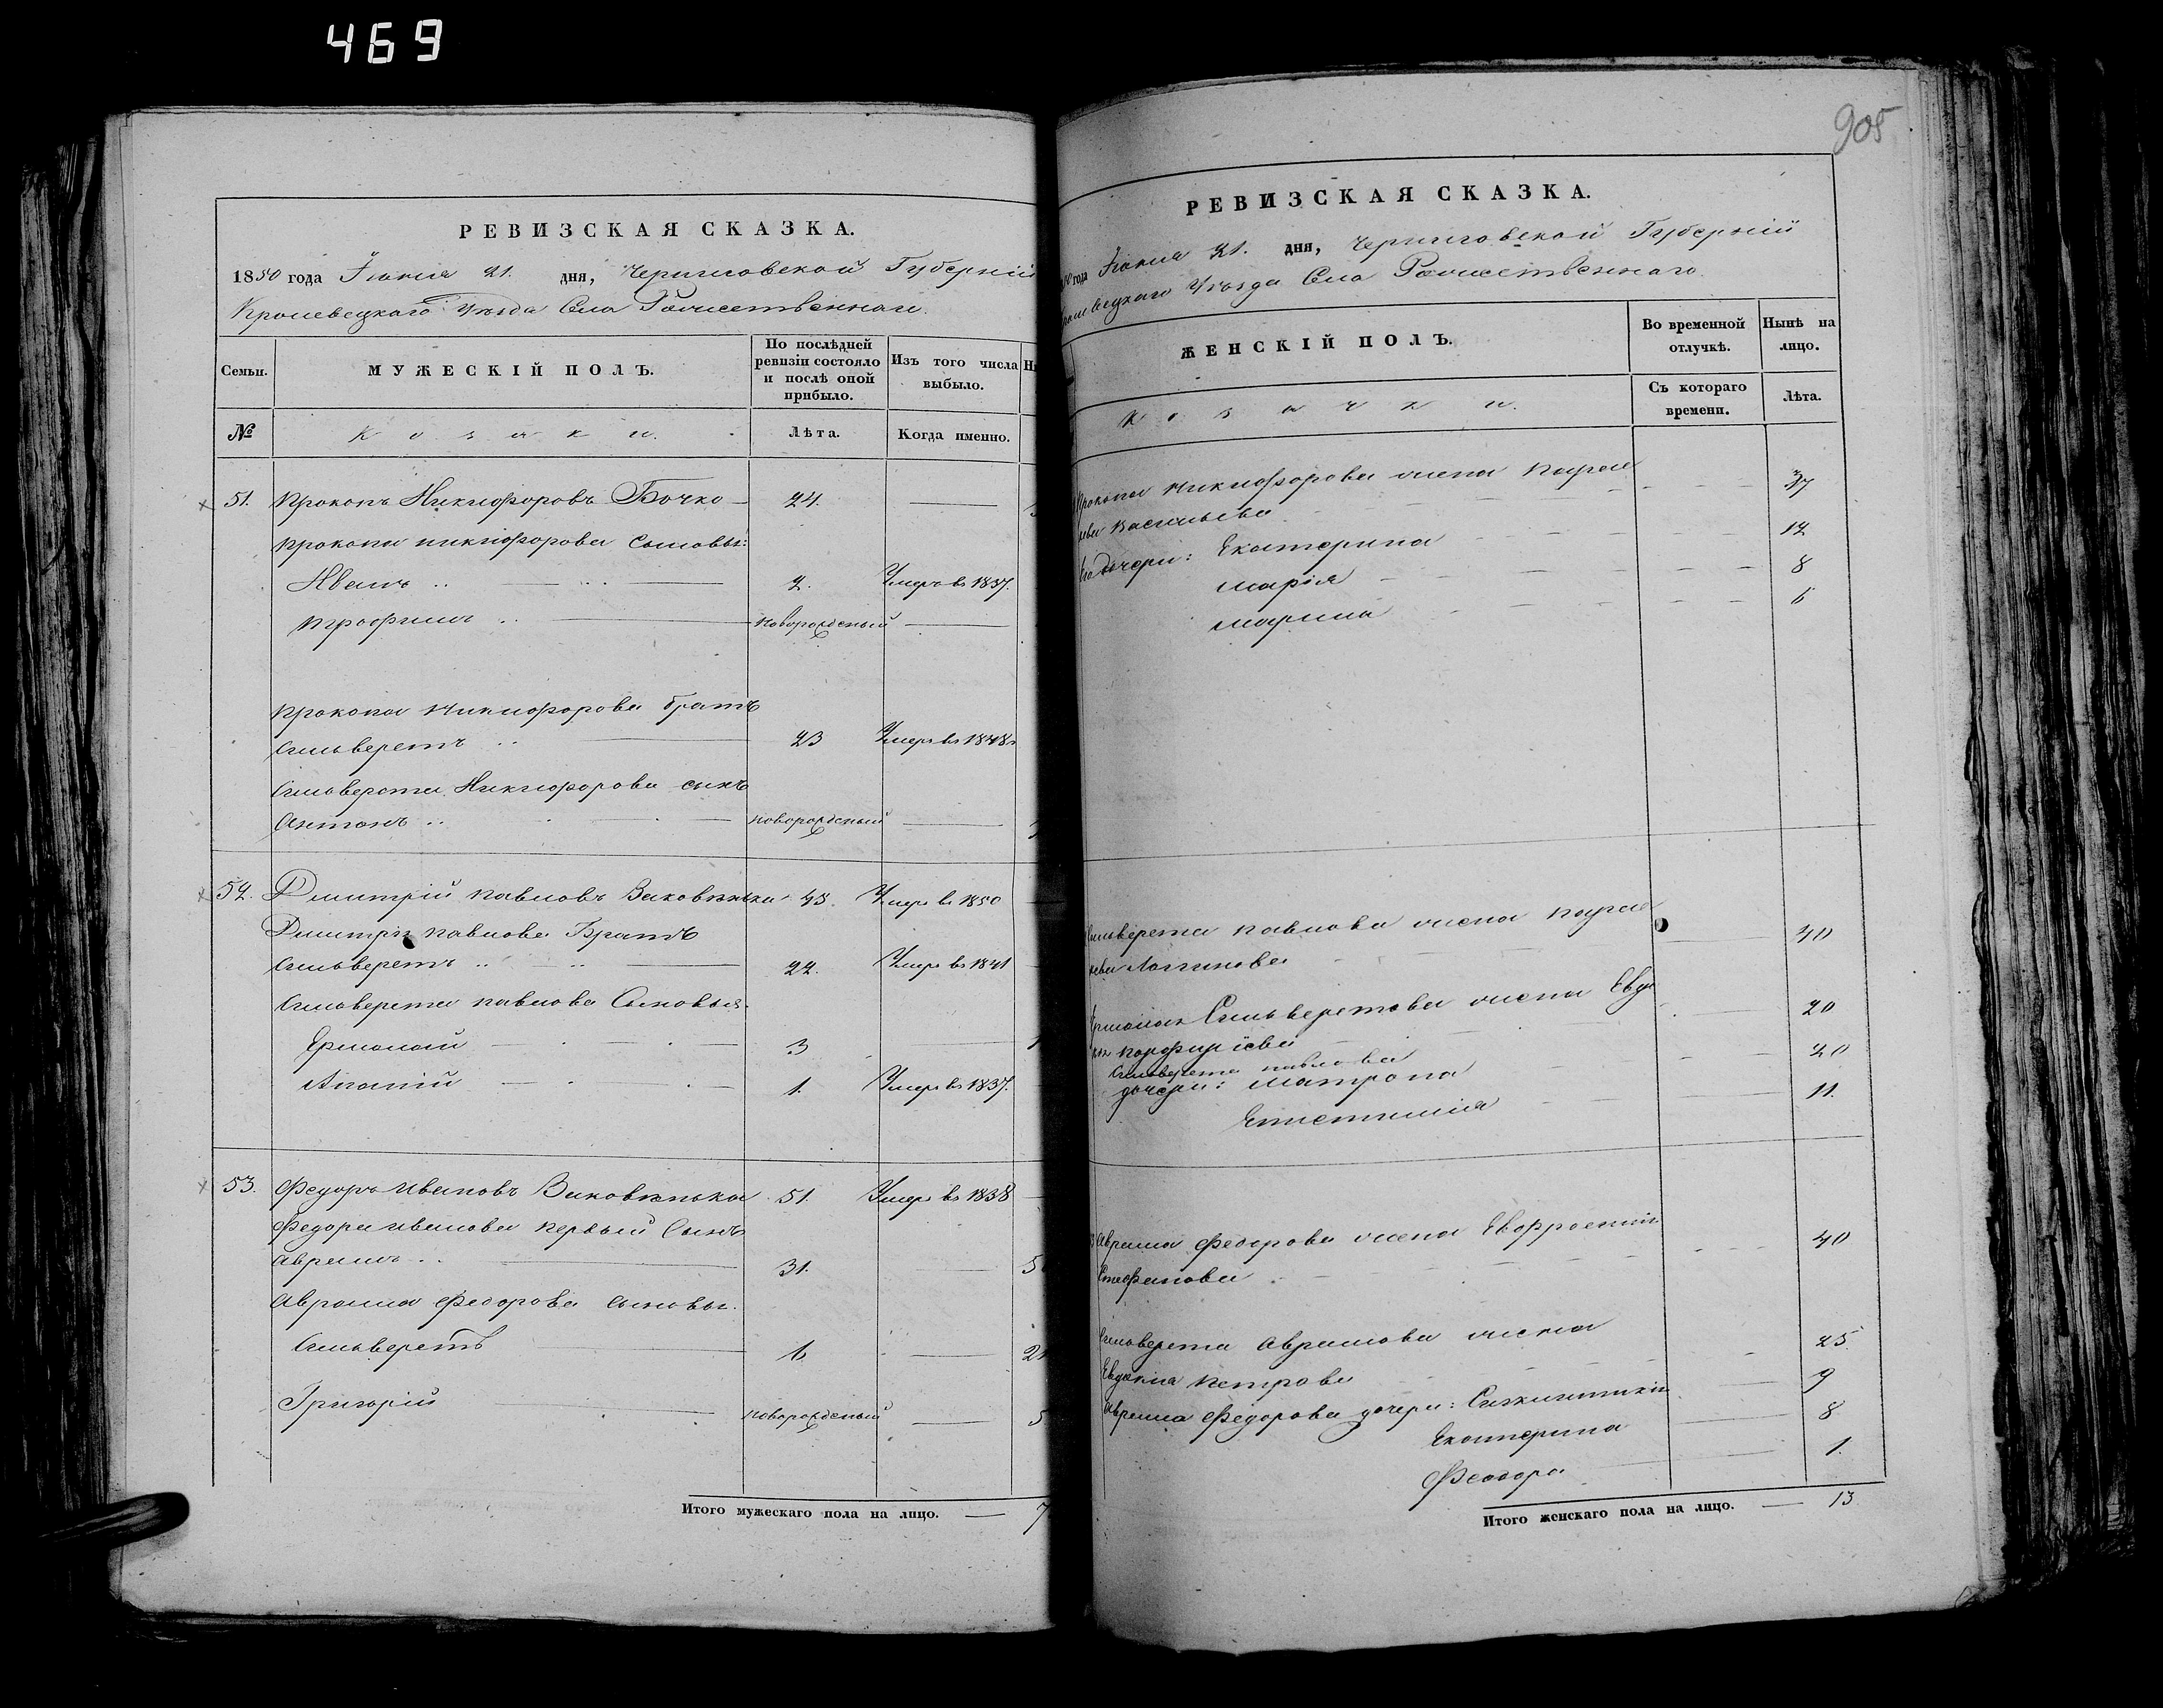 469
РЕВИЗСКАЯ СКАЗКА.
1850 года Июня 21. дня, Черниговской Губерніи
Кролевецкаго Уѣзда Села Рожественнаго.
Семьи.
МУЖЕСКІЙ ПОЛЪ.
По послѣдней ревизіи состояло и послѣ оной прибыло.
Изъ того числа выбыло.
№
Козаки.
Лѣта.
Когда именно.
51. Прокопъ Никифоровъ Бочко 24.
Прокопа Никифорова сыновья:
Иванъ 2. Умеръ въ 1837.
Трофимъ новорожденый
Прокопа Никифорова братъ
Сильверстъ 23 Умеръ въ 1848
Сильверста Никифорова сынъ
Антонъ новорожденый
52. Дмитрій Павловъ 43. Умеръ въ 1850
Дмитрія Павлова Братъ
Сильверстъ 22. Умеръ въ 1841
Сильверста Павлова Сыновья
Ермолай 3
1. Умеръ въ 1837.
53. Федоръ Ивановъ 51. Умеръ въ 1838
Федора Иванова первый Сынъ
Аврамъ 31.
Аврама Федорова сыновья
Сильверстъ 6
Григорій новорожденый
Итого мужескаго пола на лицо. — 7
905
РЕВИЗСКАЯ СКАЗКА.
года Июня 21. дня, Черниговской Губерніи
Уѣзда Села Рожественнаго.
ЖЕНСКІЙ ПОЛЪ.
Во временной отлучкѣ.
Нынѣ на лицо.
Козачки.
Съ котораго времени.
Лѣта.
Прокопа Никифорова жена Парас
кева Васильева 37
Его дочери: Екатерина 12
Марія 8
Марина 6
Сильверста Павлова жена Парас
кева Логинова 40
Ермолая Сильверстова жена Евдо
кія Порфиріева 20
Сильверста Павлова
дочери: Матрона 20
Епистимія 11.
Аврама Федорова жена Евфросинія
Стефанова 40
Сильверста Аврамова жена
Евдокія Петрова 25
Аврама Федорова дочери: 9
Екатерина 8
Феодора 1.
Итого женскаго пола на лицо. — 13